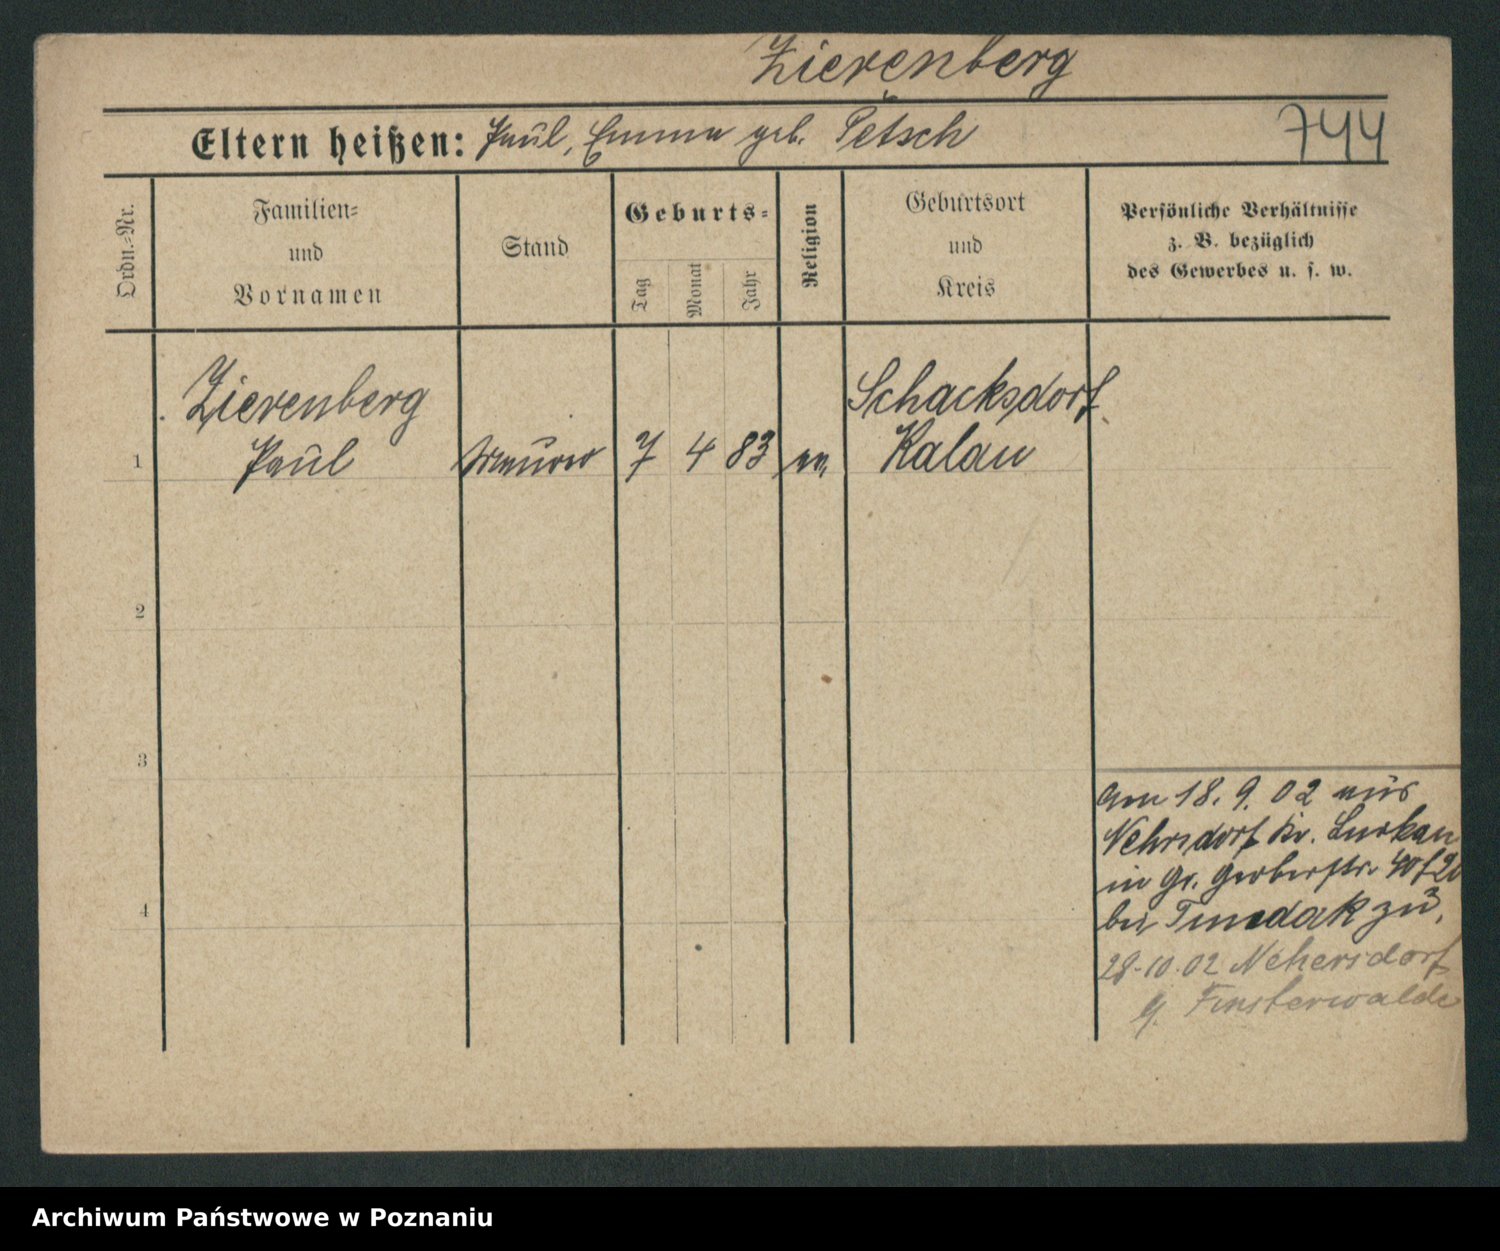 Zierenberg
Eltern heißen: Paul, Emma geb. Petsch 744
Ordn.=Nr.
Familien=
und
Vornamen
Stand
Geburts=
Tag
Monat
Jahr
Religion
Geburtsort
und
Kreis
Persönliche Verhältnisse
z. B. bezüglich
des Gewerbes u. s. w.
Zierenberg Schacksdorf
1 Paul Maurer 7 4 83 ev. Kalau
2
3
4
am 18. 9. 02 aus
Nehrsdorf Kr. Luckau
in Gr. Gerberstr. 40
bei zu.
28.10.02 Nehersdorf
Finsterwalde
Archiwum Państwowe w Poznaniu